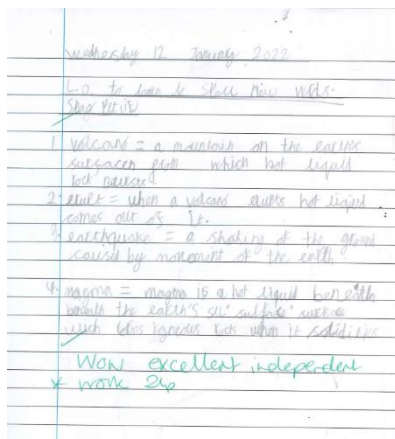 wednesday 12 January 2022
L.O. to learn to spell new words.
1. volcano = a mountain on the earths
surfacen from which hot liquid
rock
2. erult = when a volcano erults hot liquid
comes out of it.
3. earthquake = a shaking of the ground
caused by movement of the earth
4. magma = magma is a hot liquid beneath
beneath the earth's surface
which forms igneous rock when it solidifies
Wow excellent independent
* work